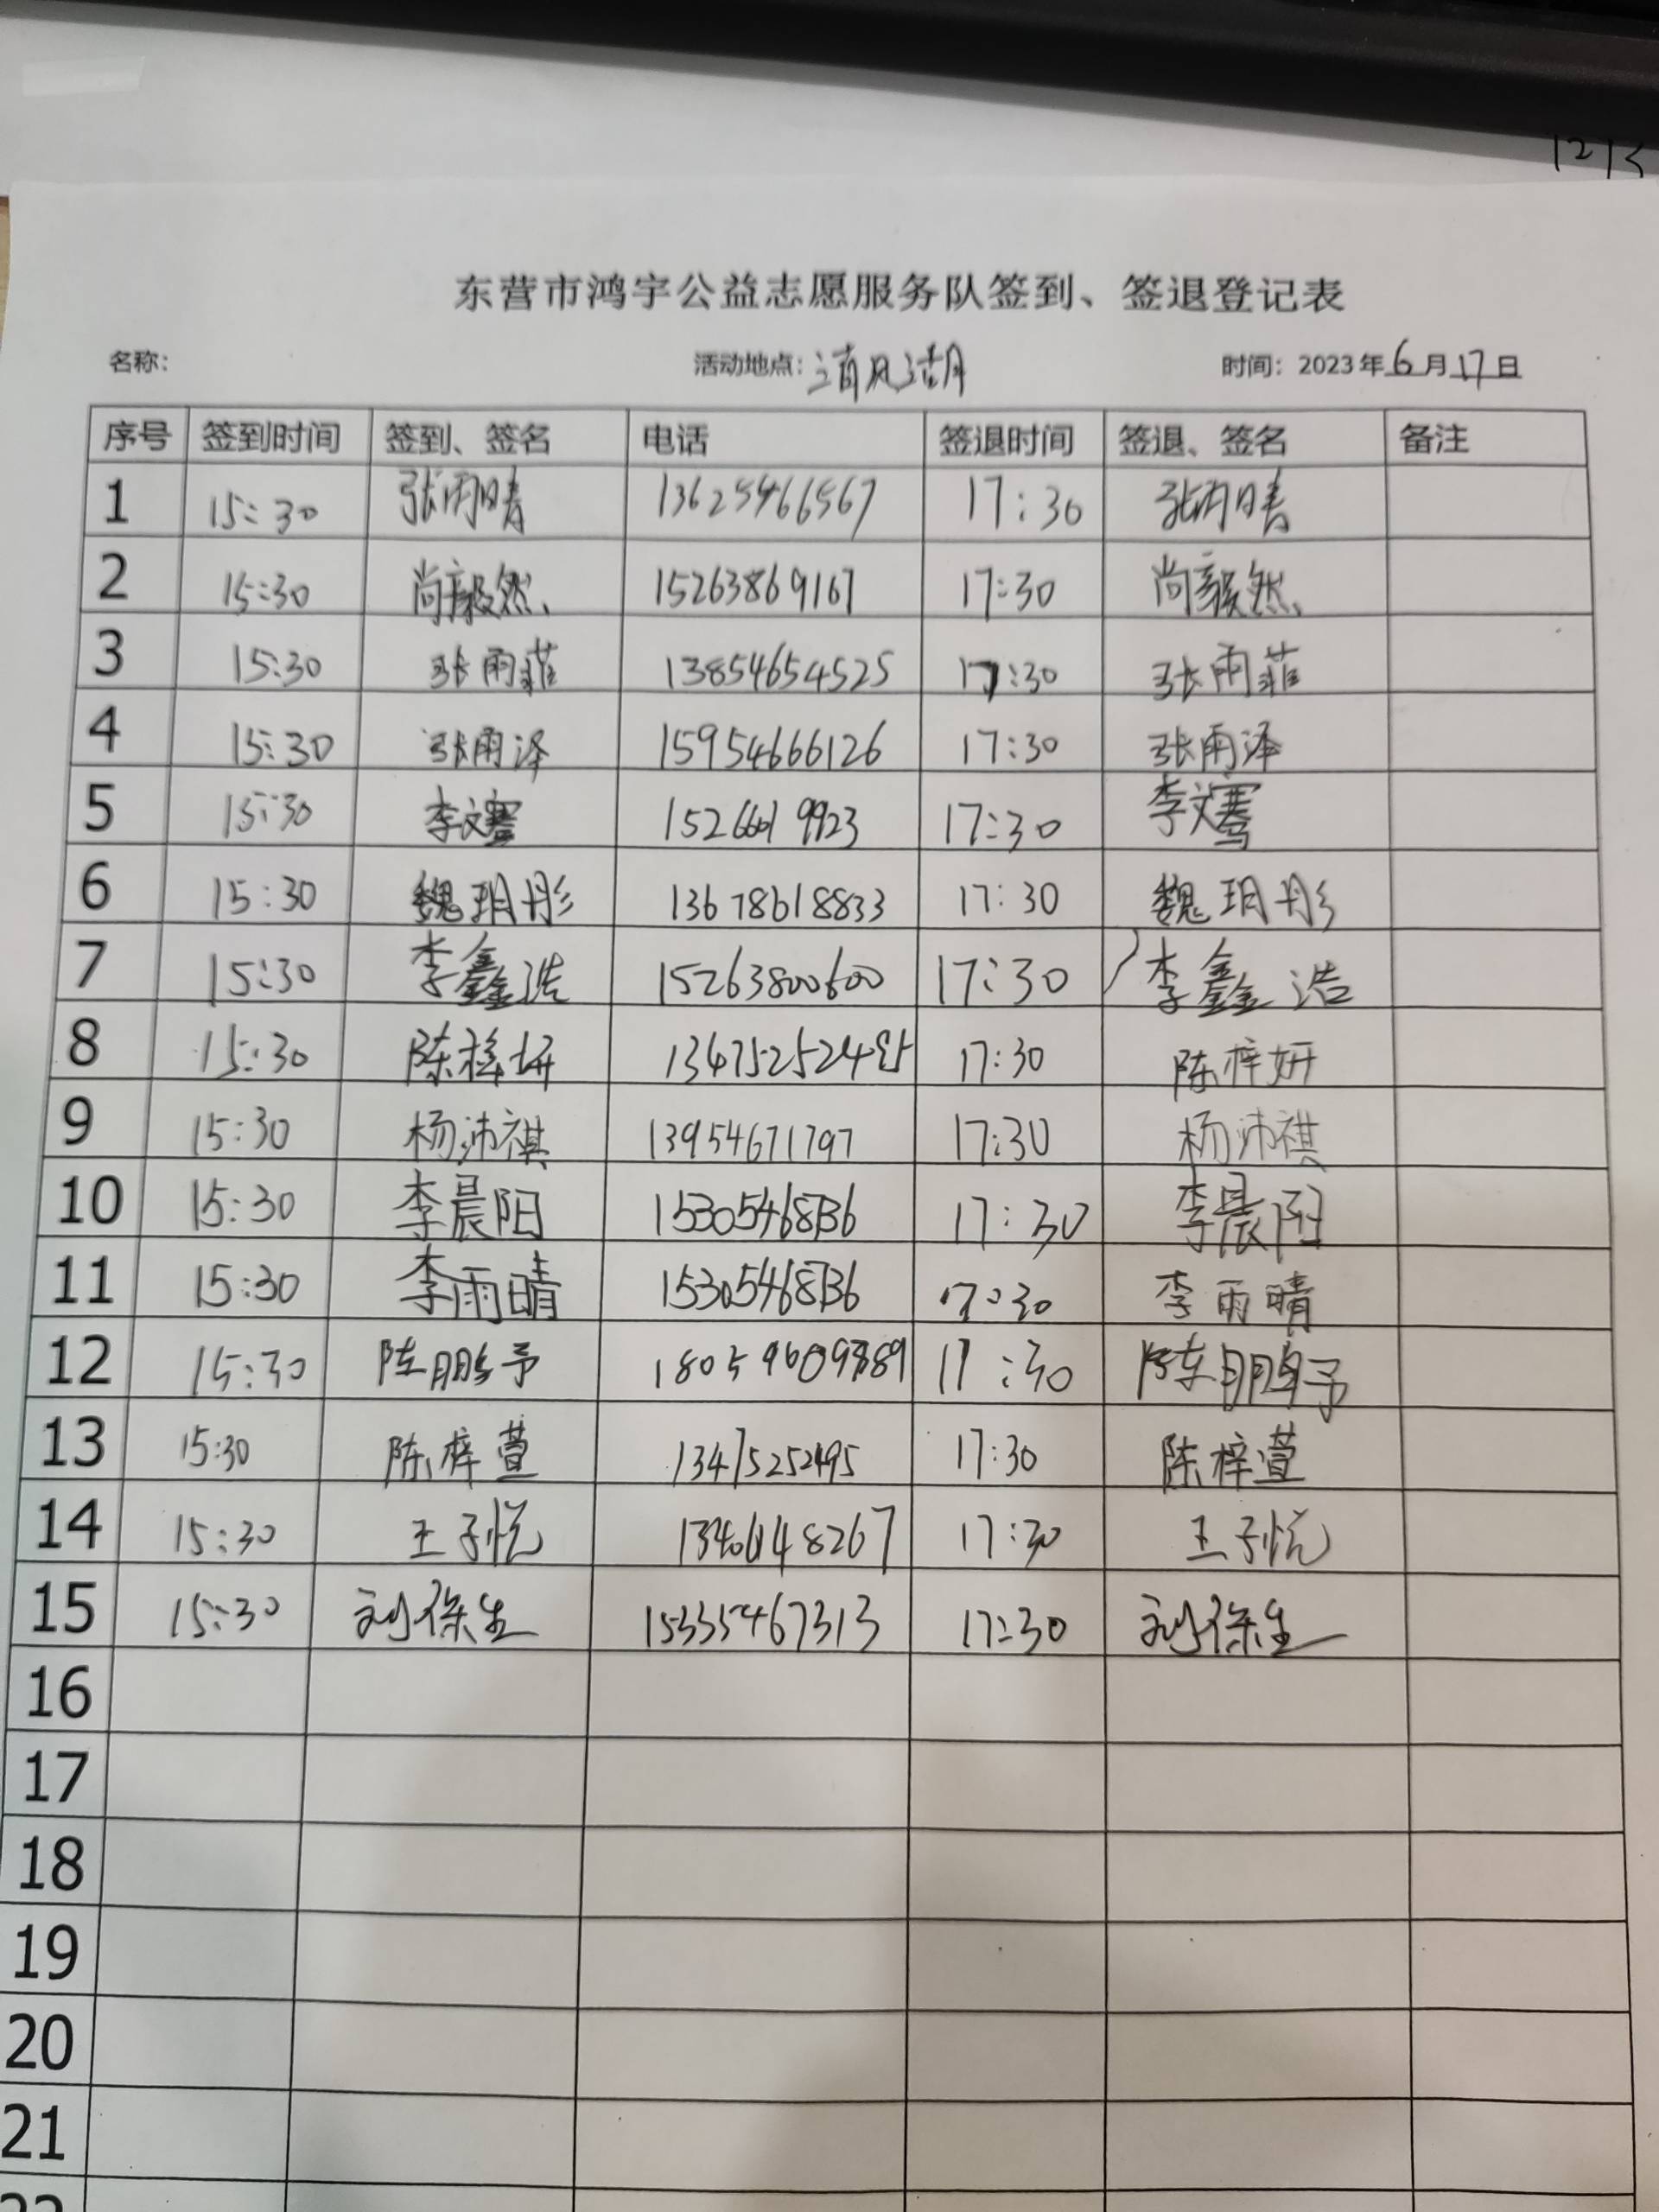 1213
东营市鸿宇公益志愿服务队签到、签退登记表
名称: 活动地点: 清风湖 时间: 2023年6月17日
序号 签到时间 签到、签名 电话 签退时间 签退、签名 备注
1 15:30 张雨晴 13625466567 17:30 张雨晴
2 15:30 尚毅然 15263869167 17:30 尚毅然
3 15:30 张雨菲 13854654525 17:30 张雨菲
4 15:30 张雨泽 15954666126 17:30 张雨泽
5 15:30 李文骞 17:30 李文骞
6 15:30 魏玥彤 13678618833 17:30 魏玥彤
7 15:30 李鑫浩 15263800600 17:30 李鑫浩
8 15:30 陈梓妍 17:30 陈梓妍
9 15:30 杨沛祺 13954671797 17:30 杨沛祺
10 15:30 李晨阳 17:30 李晨阳
11 15:30 李雨晴 17:30 李雨晴
12 15:30 陈鹏予 17:30 陈鹏予
13 15:30 陈梓萱 13475252495 17:30 陈梓萱
14 15:30 王子悦 17:30 王子悦
15 15:30 刘保生 15335467313 17:30 刘保生
16
17
18
19
20
21